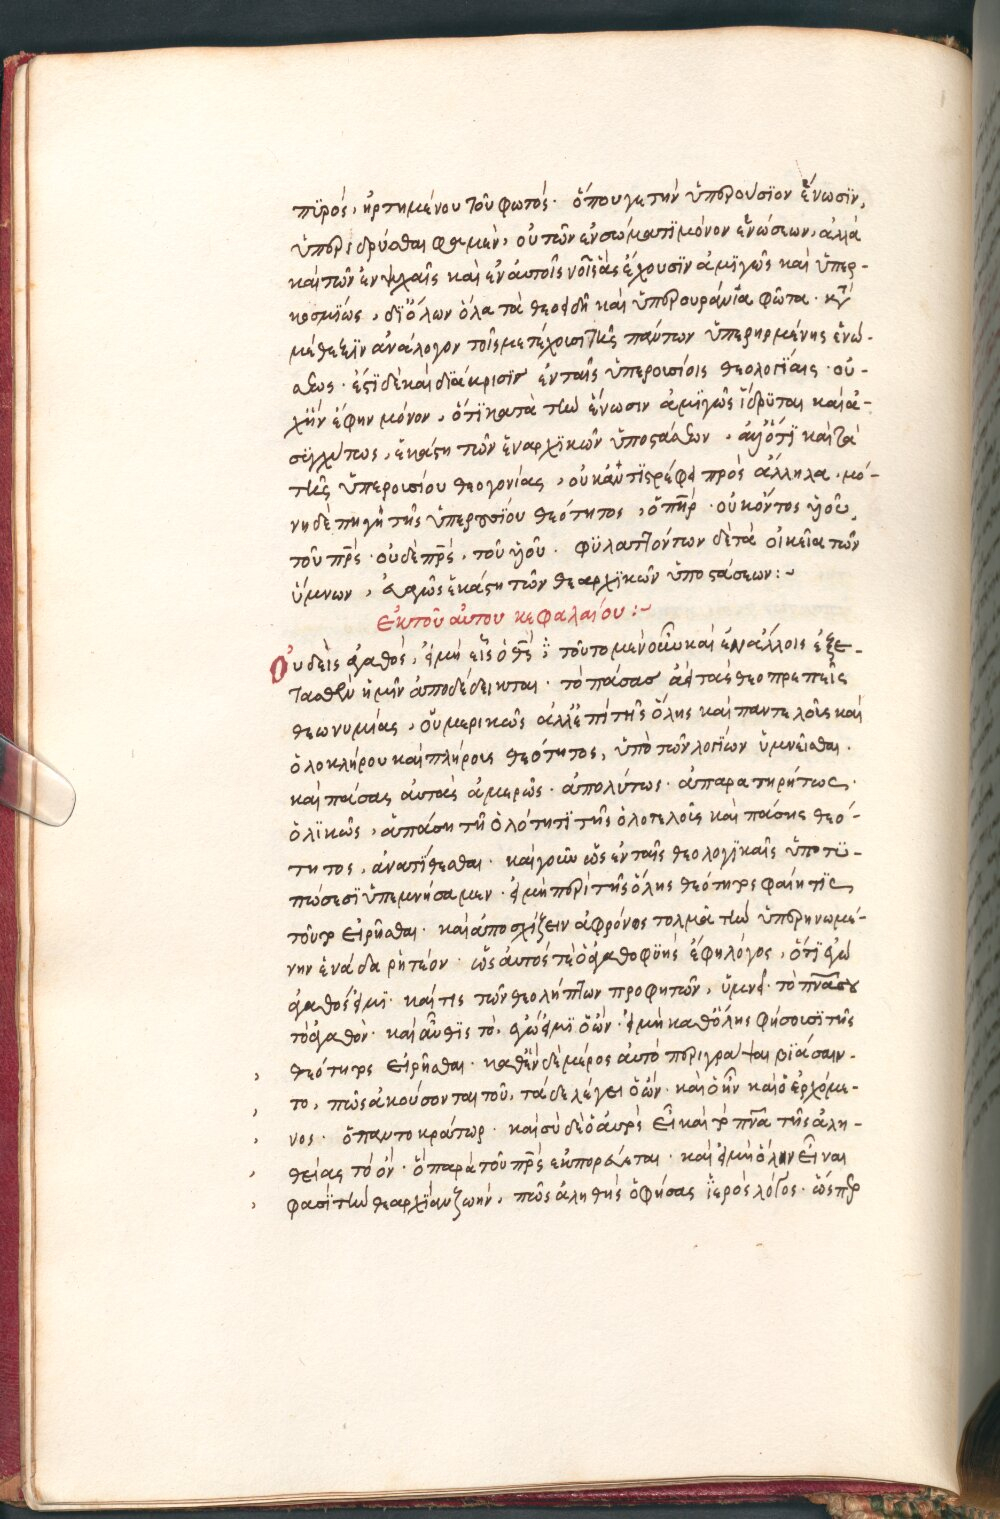 πϋρός, ἠρτημένου τοῦ φωτός· ὅπου γε τὴν ὑπερούσϊον ἕνωσϊν,
ὑπεριδρύσθαι φαμὲν, οὐ τῶν ἐν σώματι μόνον ἑνώσεων, ἀλλὰ
καὶ τῶν ἐν ψυχαῖς καὶ ἐν αὐτοῖς νοῖς· ἃς ἔχουσϊν ἀμϊγῶς καὶ ὑπερ-
κοσμίως, δϊ ὅλων ὅλα τὰ θεοειδῆ καὶ ὑπερουράνϊα φῶτα· κατὰ
μέθεξϊν ἀνάλογον τοῖς μετέχουσϊ τῆς πάντων ὑπερηρμένης ἑνώ-
σεως· ἐστϊ δὲ καὶ δϊάκρισϊς ἐν ταῖς ὑπερουσίοις θεολογίαις· οὐ-
χ ἣν ἔφην μόνον, ὅτϊ κατὰ τὴν ἕνωσιν ἀμϊγῶς ἵδρϋται καὶ ἀ-
σϋγχύτως, ἑκάστη τῶν ἑναρχϊκῶν ὑποστάσεων, ἀλλ' ὅτϊ καὶ τὰ
τῆς ὑπερουσίου θεογονίας, οὐκ ἀντϊστρέφει πρὸς ἄλληλα· μό-
νη δὲ πηγὴ τῆς ὑπερουσίου θεότητος, ὁ πηρ· οὐκ ὄντος ϋἱοῦ,
τοῦ πρς· οὐδὲ πρς, τοῦ ϋἱοῦ· φϋλαττόντων δὲ τὰ οἰκεῖα τῶν
ὕμνων, εὐαγῶς ἑκάστη τῶν θεαρχϊκῶν ὑποστάσεων:~
Ἐκ τοῦ αὐτοῦ κεφαλαίου:~
Οὐδεὶς ἀγαθός, εἰ μὴ εἷς ὁ θς· τοῦτο μὲν οὖν καὶ ἐν ἄλλοις ἐξε-
τασθὲν ἡμῖν ἀποδέδεικται· τὸ πάσας ἀεὶ τὰς θεοπρεπεῖς
θεωνυμίας, οὐ μερικῶς ἀλλ' ἐπὶ τῆς ὅλης καὶ παντελοῦς καὶ
ὁλοκλήρου καὶ πλήρους θεότητος, ὑπὸ τῶν λογίων ὑμνεῖσθαι·
καὶ πάσας αὐτὰς ἀμερῶς· ἀπολύτως· ἀπαρατηρήτως·
ὁλϊκῶς, ἁπάση τῆ ὁλότητϊ τῆς ὁλοτελοῦς καὶ πάσης θεό-
τητος, ἀνατίθεσθαι· καὶ γοῦν ὡς ἐν ταῖς θεολογϊκαῖς ὑποτϋ-
πώσεσϊ ὑπεμνήσαμεν· εἰ μὴ περὶ τῆς ὅλης θεότητος φαίη τϊς
τοῦτο εἰρῆσθαι· καὶ ἀποσχίζειν ἀφρόνως τολμᾶ τὴν ὑπερηνωμέ-
νην ἑνάδα ῥητέον· ὡς αὐτός τε ὁ ἀγαθοφϋὴς ἔφη λόγος, ὅτϊ ἐγὼ
ἀγαθός εἰμϊ· καί τις τῶν θεολήπτων προφητῶν, ὑμνεῖ· τὸ πνα σου
τὸ ἀγαθόν· καὶ αὖθϊς τὸ, ἐγώ εἰμϊ ὁ ὤν· εἰ μὴ καθ' ὅλης φήσουσϊ τῆς
θεότητος εἰρῆσθαι· καθ' ἓν δὲ μέρος αὐτὸ περιγράψαι βϊάσαιν-
το, πῶς ἀκούσονται τοῦ, τάδε λέγει ὁ ὤν· καὶ ὁ ἦν καὶ ὁ ἐρχόμε-
νος· ὁ παντοκράτωρ· καὶ σὺ δὲ ὁ αὐτὸς εἶ καὶ τὸ πνα τῆς ἀλη-
θείας τὸ ὂν· ὃ παρὰ τοῦ πρς ἐκπορεύεται· καὶ εἰ μὴ ὅλην εἶναι
φασὶ τὴν θεαρχίαν ζωὴν, πῶς ἀληθὴς ὁ φήσας ἱερὸς λόγος· ὥσπερ